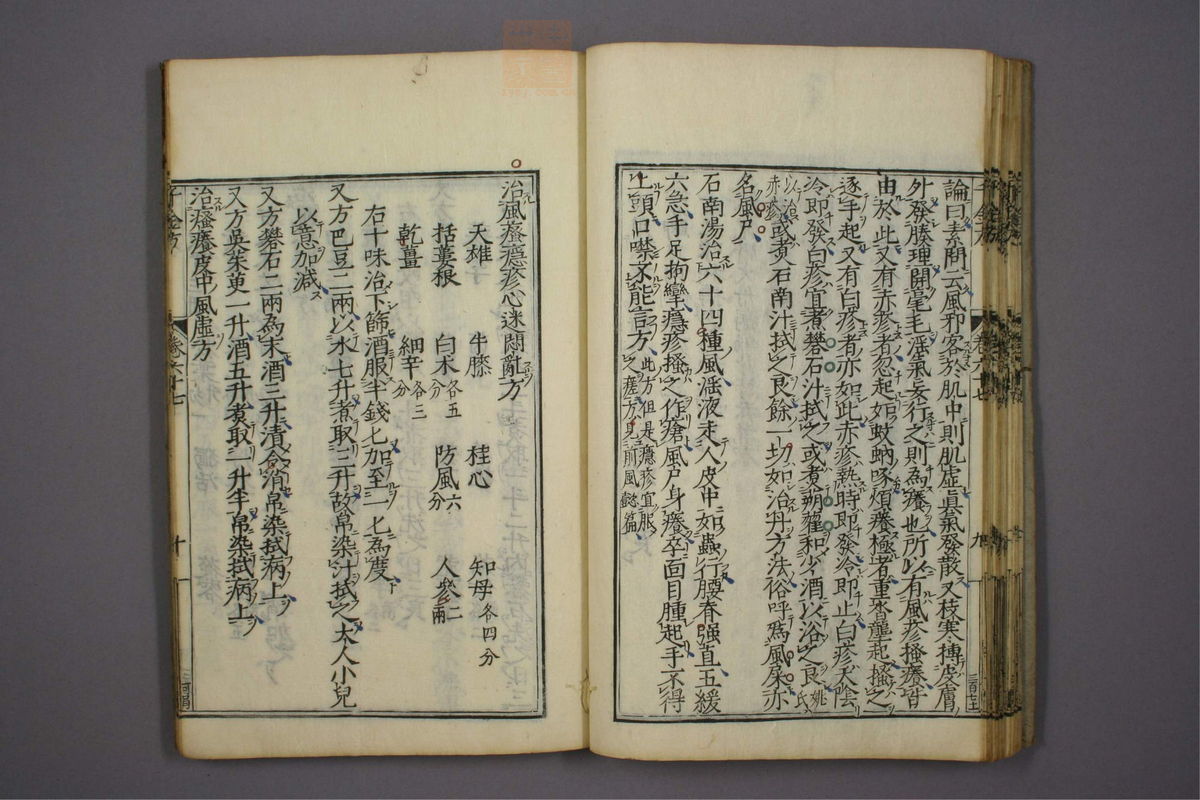 論曰素問云風邪客於肌中則肌虛眞氣發散又挾寒搏皮膚
外發腠理開毫毛淫氣妄行之則爲癢也所以有風疹搔癢皆
由於此又有赤疹者忽起如蚊蚋啄煩癢極者重沓壟起搔之
逐手起又有白疹者亦如此赤疹熱時即發冷即止白疹天陰
冷即發白疹宜煮礬石汁拭之或煮蒴藋和少酒以浴之良姚氏
以治赤疹或煮石南汁拭之良餘一切如治丹方法俗呼爲風屎亦
名風尸
石南湯治六十四種風淫液走人皮中如蟲行腰脊强直五緩
六急手足拘攣癮疹搔之作瘡風尸身癢卒面目腫起手不得
上頭口噤不能言方此方但是癮疹宜服之瘥方見前風懿篇
治風瘙癮疹心迷悶亂方
天雄 牛膝 桂心 知母各四分
栝蔞根 白朮各五分 防風六分 人參二兩
乾薑 細辛各三分
右十味治下篩酒服半錢匕加至一匕爲度
又方巴豆二兩以水七升煮取三升故帛染汁拭之大人小兒
以意加減
又方礬石二兩爲末酒三升漬令消帛染拭病上
又方吳茱萸一升酒五升煮取一升半帛染拭病上
治瘙癢皮中風虛方
千金方 卷六十七 十